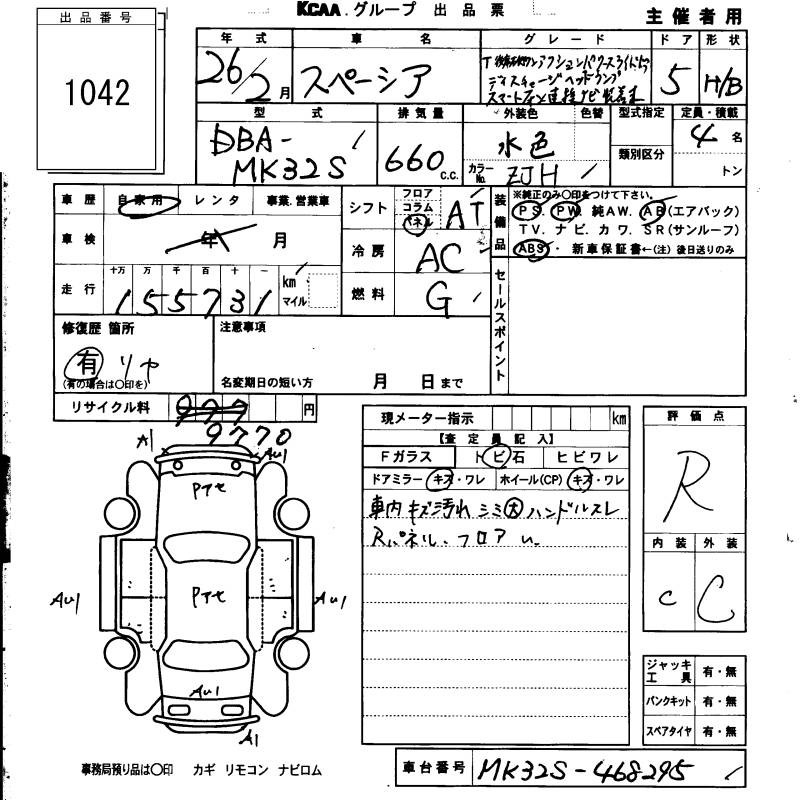 KCAA.グループ 出品票
主催者用
出品番号
1042
年式 車名 グレード ドア 形状
26/2月 スペーシア 5 H/B
T
ディスチャージヘッドランプ
型式 排気量 外装色 色替 型式指定 定員・積載
DBA-
MK32S
660 c.c.
水色
カラーNo. ZJH
類別区分
4名
トン
車歴 自家用 レンタ 事業.営業車
車検 年 月
走行 十万 万 千 百 十 一
155731 km マイル
シフト フロア コラム パネル AT
冷房 AC
燃料 G
装備品
※純正のみ〇印をつけて下さい。
PS. PW. 純AW. AB(エアバック)
TV. ナビ. カワ. SR(サンルーフ)
ABS・ 新車保証書←(注)後日送りのみ
セールスポイント
修復歴 箇所
有 リヤ
(有の場合は〇印を)
注意事項
名変期日の短い方 月 日まで
リサイクル料 円
9770
現メーター指示 km
【査定員記入】
Fガラス トビ石 ヒビワレ
ドアミラー キズ・ワレ ホイール(CP) キズ・ワレ
車内キズ汚れ シミ大 ハンドルスレ
Rパネル.フロア
評価点
R
内装 外装
C C
A1 AU1
Pアセ
AU1 Pアセ AU1
AU1
A1
ジャッキ工具 有・無
パンクキット 有・無
スペアタイヤ 有・無
事務局預り品は〇印 カギ リモコン ナビロム
車台番号 MK32S-468295